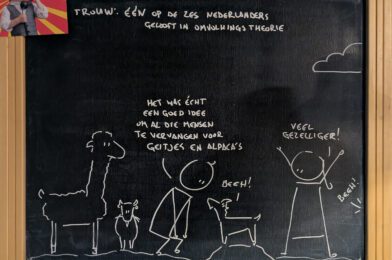 TROUW: ÉÉN OP DE ZES NEDERLANDERS
GELOOFT IN OMVOLKINGSTHEORIE
HET WAS ÉCHT
EEN GOED IDEE
OM AL DIE MENSEN
TE VERVANGEN VOOR
GEITJES EN ALPACA'S
VEEL
GEZELLIGER!
BEEH!
BEEH!